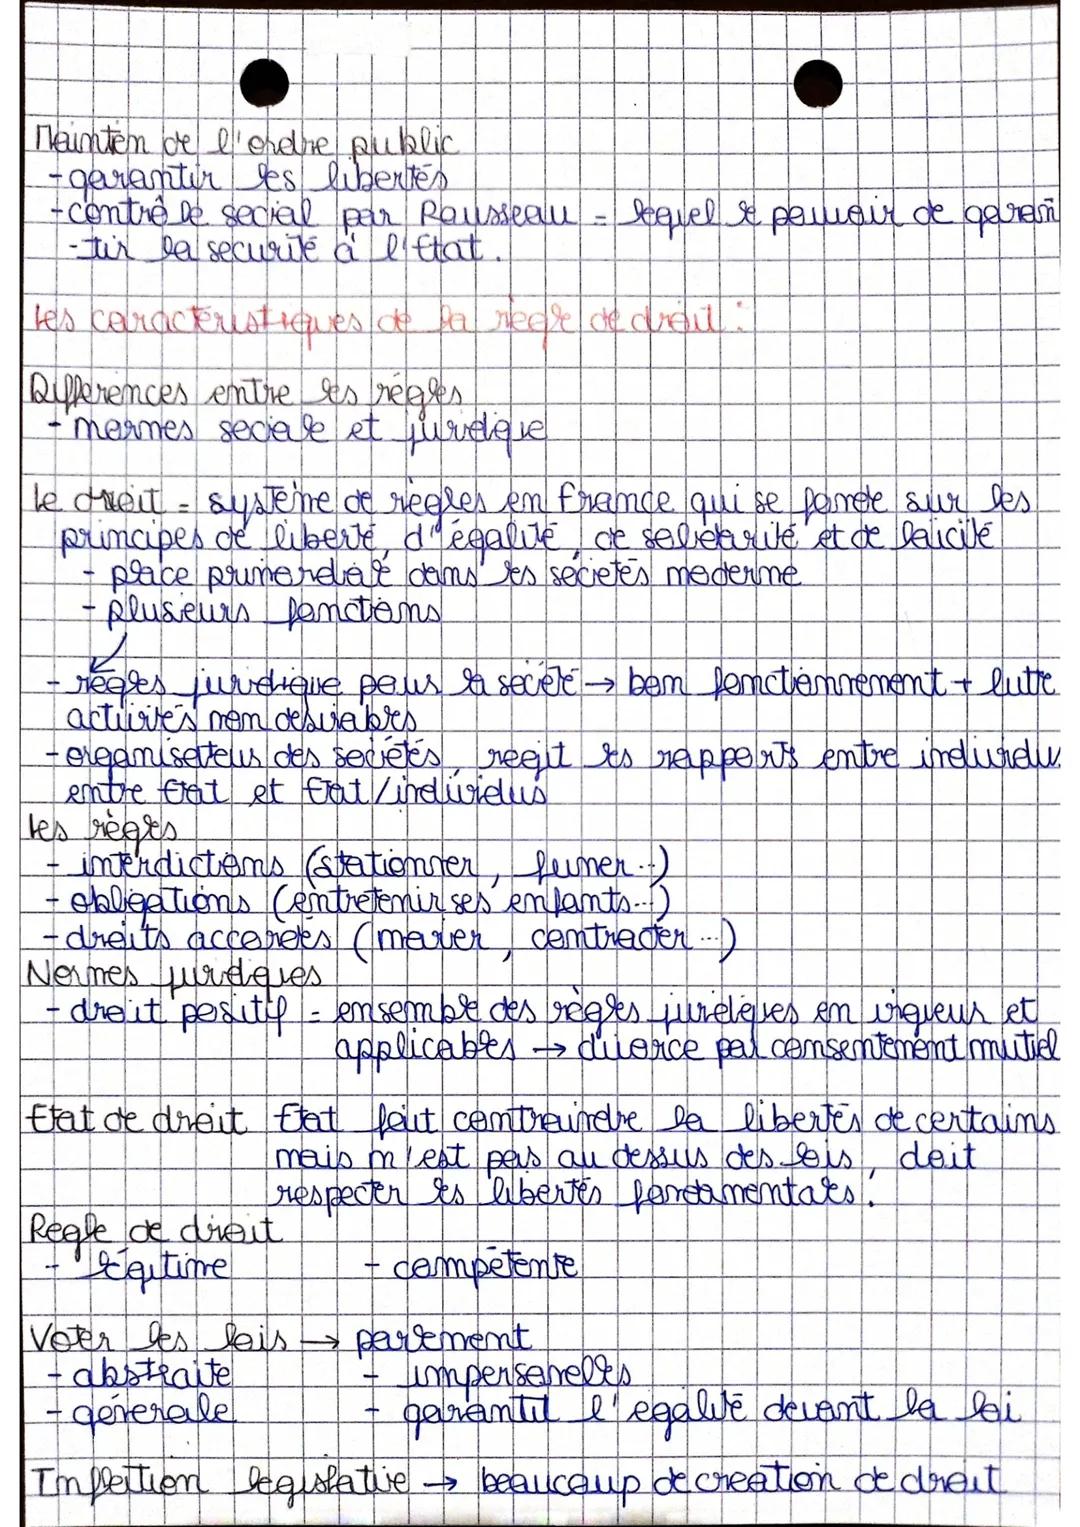 Maintien de l'ordre public
- garantir les libertés
- contrôle social par Rousseau = lequel le pouvoir de garan
- tir la securité à l'Etat.
Les caractéristiques de la règle de droit :
Différences entre les règles
- normes sociale et juridique
Le droit = système de règles en France qui se fonde sur les
principes de liberté, d'égalité, de solidarité et de laïcité
- place primordiale dans les sociétés moderne
- plusieurs fonctions
- règles juridique pour la société → bon fonctionnement + lutte
activités non désirables
- organisateur des sociétés, regit les rapports entre individu
entre Etat et Etat/individus
Les règles
- interdictions (stationner, fumer...)
- obligations (entretenir ses enfants...)
- droits accordés (marier, contracter...)
Normes juridiques
- droit positif = ensemble des règles juridiques en vigueur et
applicables → divorce par consentement mutuel
Etat de droit Etat fait contraindre la libertés de certains
mais n'est pas au dessus des lois, doit
respecter les libertés fondamentales.
Règle de droit
- légitime - compétente
Voter les lois → parlement
- abstraite - impersonelles
- générale - garantit l'égalité devant la loi
Inflation legislative → beaucoup de creation de droit